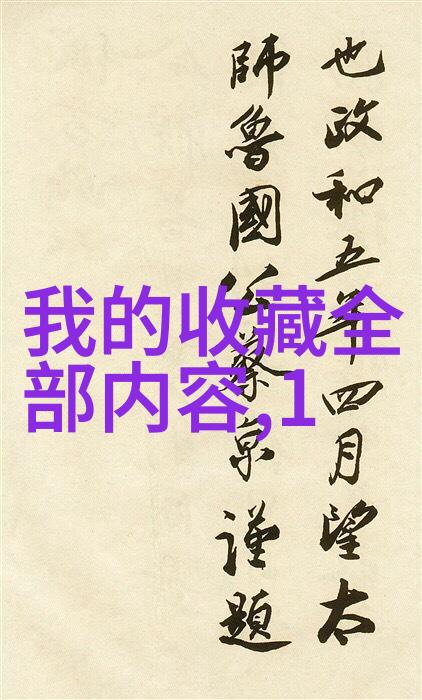 也政和五年四月望太
師魯國公蔡京謹題
我的收藏全
部内容,1